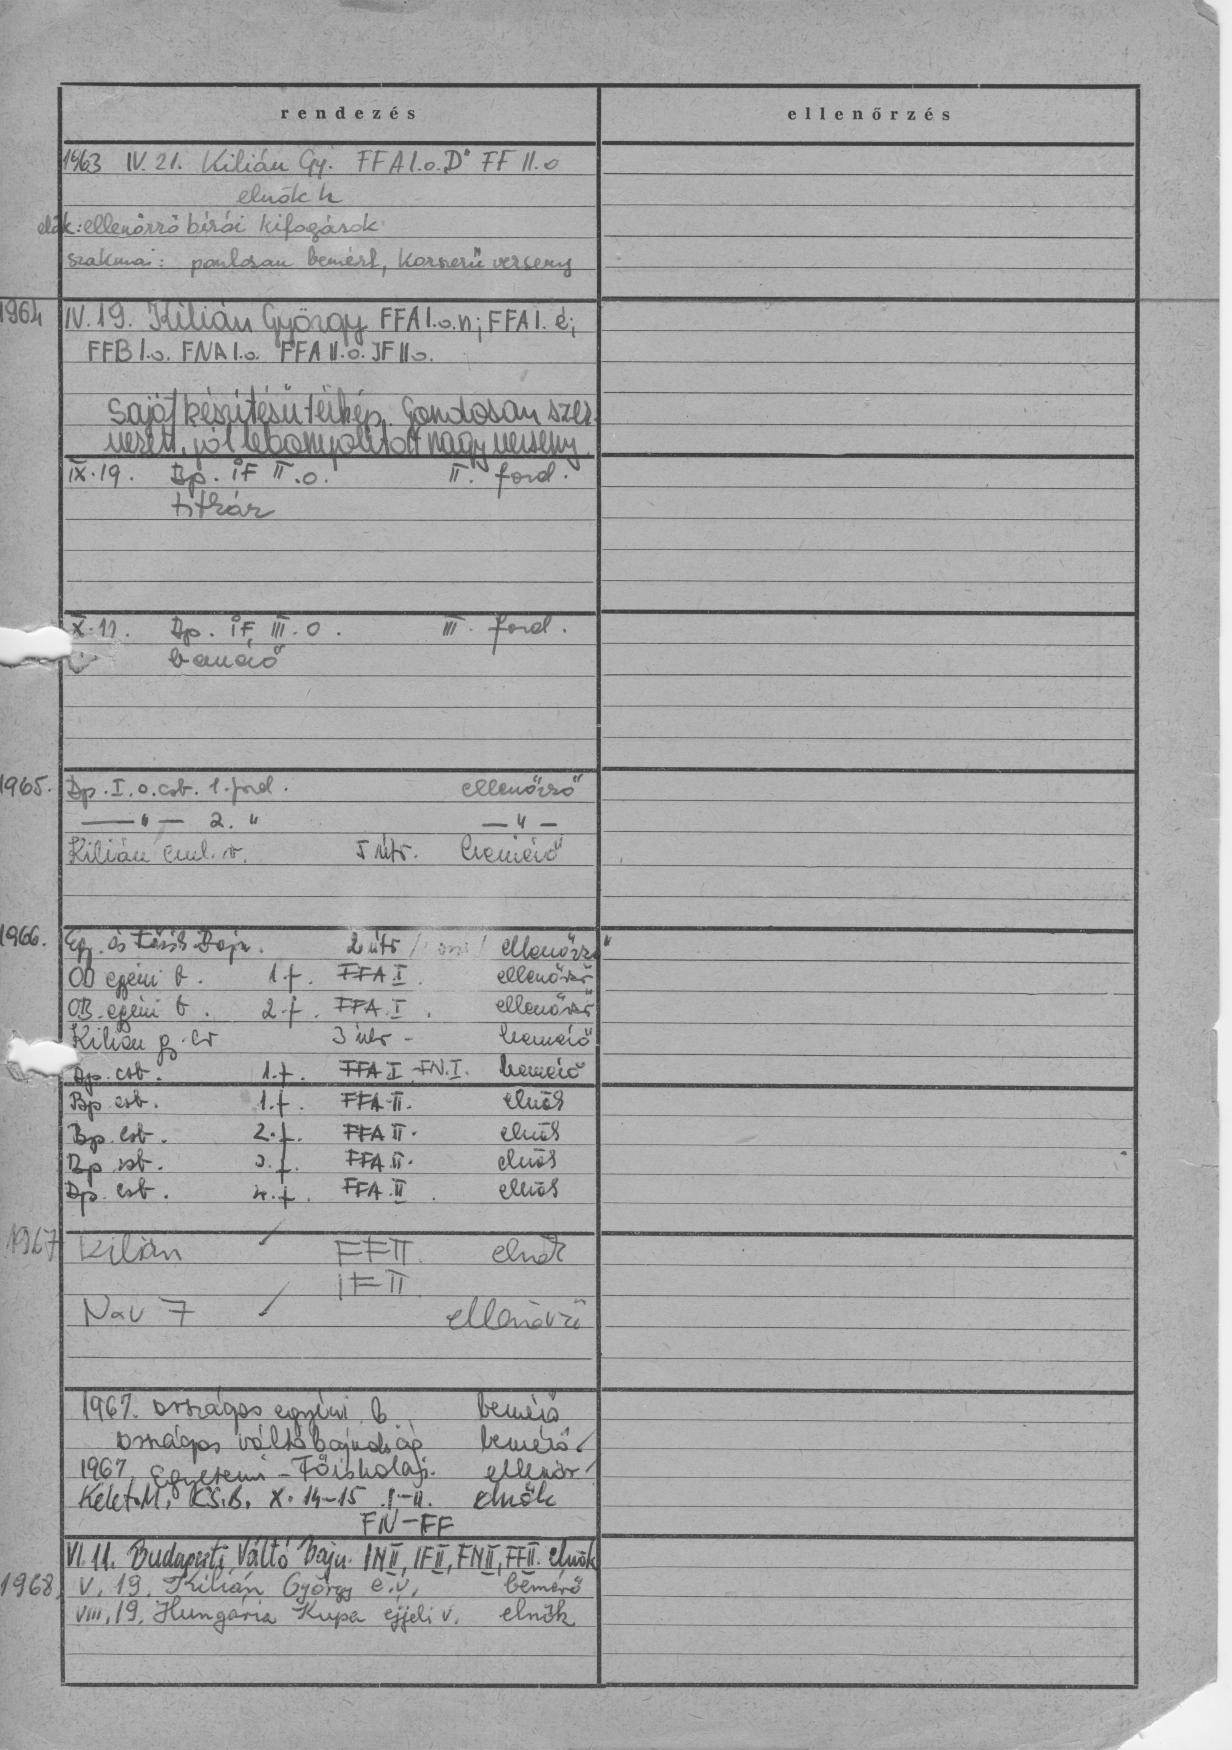 rendezés
ellenőrzés
1963 IV. 21. Kilián Gy. FFA I.o. D" FF II.o
elnök h
elők: ellenőrző bírói kifogások
szakmai: pontosan bemért, korszerű verseny
1964 IV. 19. Kilián György FFA I.o.n; FFA I. é;
FFB I.o. FNA I.o. FFA II.o. JF II o.
Saját készítésű térkép. Gondosan szer-
vezett, jól lebonyolított nagy verseny
IX. 19. Bp. iF II.o. II. ford.
titkár
X. 11. Bp. iF III.o. III. ford.
bemérő
1965. Bp. I. o. csb. 1. ford. ellenőrző
— " — 2. " — " —
Kilián eml. v. I útr. bemérő
1966. Egy. és Főisk Bajn. 2 útr ellenőrző
OB egyéni b. 1.f. FFA I. ellenőrző
OB. egyéni b. 2.f. FFA. I. ellenőrző
Kilián gy. 3 útr - bemérő
Bp. csb. 1.f. FFA I FN.I. bemérő
Bp csb. 1.f. FFA II. elnök
Bp. csb. 2.f. FFA II. elnök
Bp. csb. 3.f. FFA II. elnök
Bp. csb. 4.f. FFA II. elnök
1967 Kilián ✓ FF II. elnök
iF II
Nov 7 ✓ ellenőrző
1967. országos egyéni b bemérő
országos váltóbajnokság bemérő
1967. Egyetemi - Főiskolai. ellenőr
Kelet.M. K.S.B. X. 14-15 I-II. elnök
FN-FF
VI. 11. Budapesti Váltó Bajn. INII, IFII, FNII, FFII. elnök
1968. V. 19. Kilián György e.v. bemérő
VIII. 19. Hungária Kupa éjjeli v. elnök